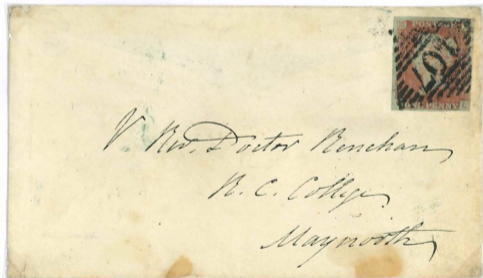 POSTAGE
107
ONE PENNY
V Rev. Doctor Renehan
R. C. College
Maynooth